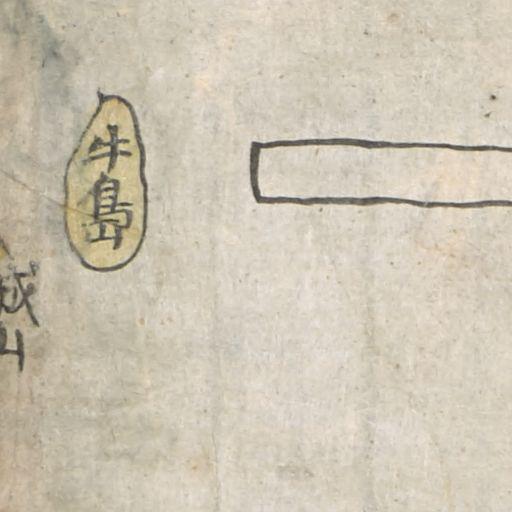 牛島
城山